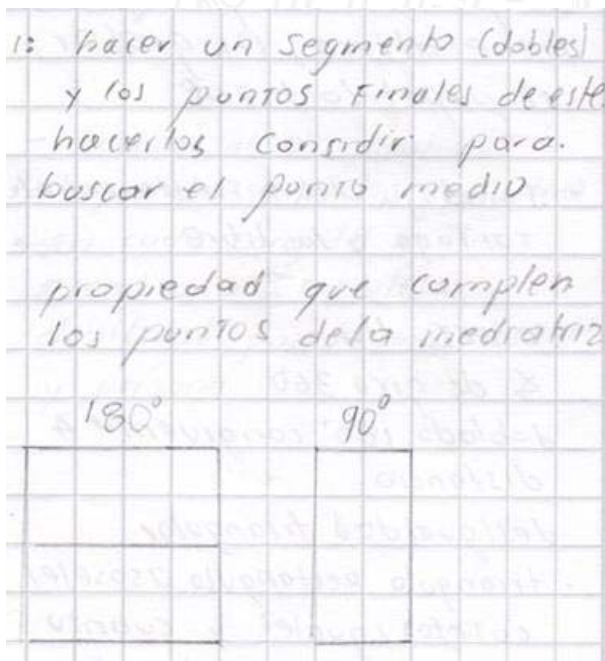 1: hacer un segmento (dobles)
y los puntos finales de este
hacerlos considir para.
buscar el punto medio
propiedad que cumplen
los puntos de la mediatriz
180° 90°